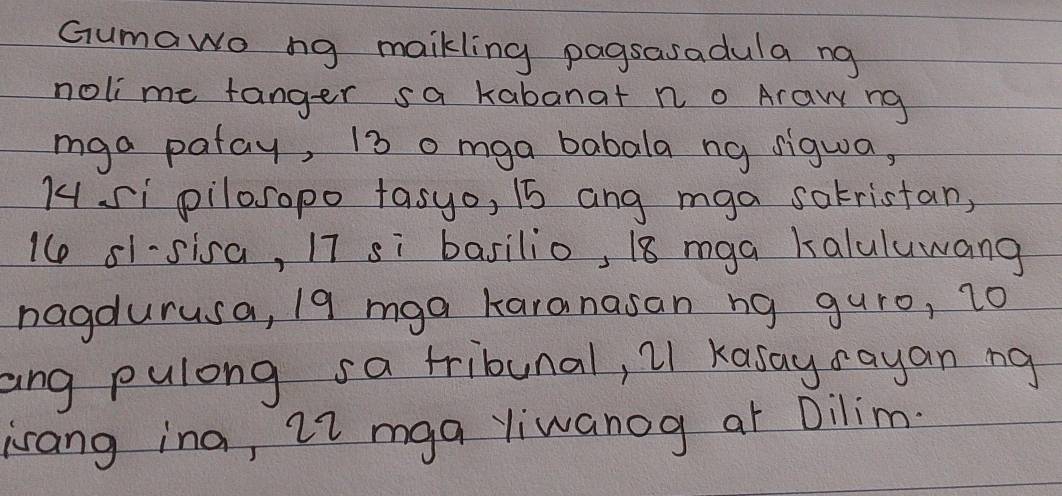 Gumawo ng maikling pagsasadula ng
noli me tanger sa kabanat n o Araw ng
mga patay, 13 o mga babala ng sigwa,
14 si pilosopo tasyo, 15 ang mga sakristan,
16 si-sisa, 17 si basilio, 18 mga kaluluwang
nagdurusa, 19 mga karanasan ng guro, 20
ang pulong sa tribunal, 21 kasaysayan ng
isang ina, 22 mga liwanag at Dilim.